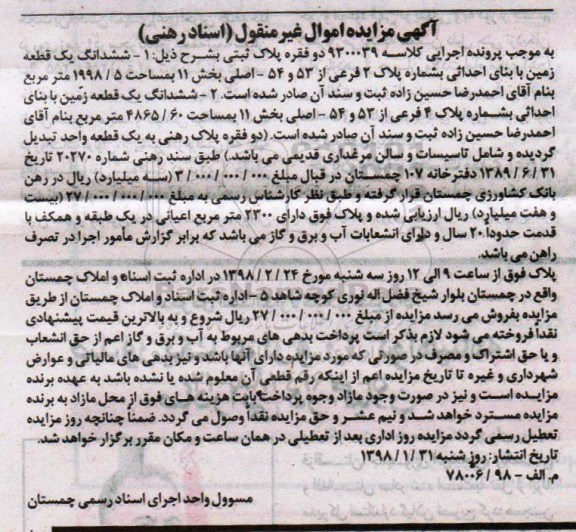 آگهی مزایده اموال غیر منقول (اسناد رهنی)
به موجب پرونده اجرایی کلاسه ۹۳۰۰۰۳۹ دو فقره پلاک ثبتی بشرح ذیل: ۱- ششدانگ یک قطعه
زمین با بنای احداثی بشماره پلاک ۲ فرعی از ۵۳ و ۵۴ - اصلی بخش ۱۱ بمساحت ۱۹۹۸/۵ متر مربع
بنام آقای احمدرضا حسین زاده ثبت و سند آن صادر شده است. ۲- ششدانگ یک قطعه زمین با بنای
احداثی بشماره پلاک ۴ فرعی از ۵۳ و ۵۴ - اصلی بخش ۱۱ بمساحت ۴۸۶۵/۶۰ متر مربع بنام آقای
احمدرضا حسین زاده ثبت و سند آن صادر شده است. (دو فقره پلاک رهنی به یک قطعه واحد تبدیل
گردیده و شامل تاسیسات و سالن مرغداری قدیمی می باشد.) طبق سند رهنی شماره ۲۰۲۷۰ تاریخ
۱۳۸۹/۶/۳۱ دفترخانه ۱۰۷ چمستان در قبال مبلغ ۳/۰۰۰/۰۰۰/۰۰۰ (سه میلیارد) ریال در رهن
بانک کشاورزی چمستان قرار گرفته و طبق نظر کارشناس رسمی به مبلغ ۲۷/۰۰۰/۰۰۰/۰۰۰ (بیست
و هفت میلیارد) ریال ارزیابی شده و پلاک فوق دارای ۲۳۰۰ متر مربع اعیانی در یک طبقه و همکف با
قدمت حدوداً ۲۰ سال و دارای انشعابات آب و برق و گاز می باشد که برابر گزارش مأمور اجرا در تصرف
راهن می باشد.
پلاک فوق از ساعت ۹ الی ۱۲ روز سه شنبه مورخ ۱۳۹۸/۲/۲۴ در اداره ثبت اسناد و املاک چمستان
واقع در چمستان بلوار شیخ فضل اله نوری کوچه شاهد ۵ - اداره ثبت اسناد و املاک چمستان از طریق
مزایده بفروش می رسد مزایده از مبلغ ۲۷/۰۰۰/۰۰۰/۰۰۰ ریال شروع و به بالاترین قیمت پیشنهادی
نقداً فروخته می شود لازم بذکر است پرداخت بدهی های مربوط به آب و برق و گاز اعم از حق انشعاب
و یا حق اشتراک و مصرف در صورتی که مورد مزایده دارای آنها باشد و نیز بدهی های مالیاتی و عوارض
شهرداری و غیره تا تاریخ مزایده اعم از اینکه رقم قطعی آن معلوم شده یا نشده باشد به عهده برنده
مزایده است و نیز در صورت وجود مازاد وجوه پرداختی بابت هزینه های فوق از محل مازاد به برنده
مزایده مسترد خواهد شد و نیم عشر و حق مزایده نقداً وصول می گردد. ضمناً چنانچه روز مزایده
تعطیل رسمی گردد مزایده روز اداری بعد از تعطیلی در همان ساعت و مکان مقرر برگزار خواهد شد.
تاریخ انتشار: روز شنبه ۱۳۹۸/۱/۳۱
م. الف - ۷۸۰۰۶/۹۸
مسوول واحد اجرای اسناد رسمی چمستان